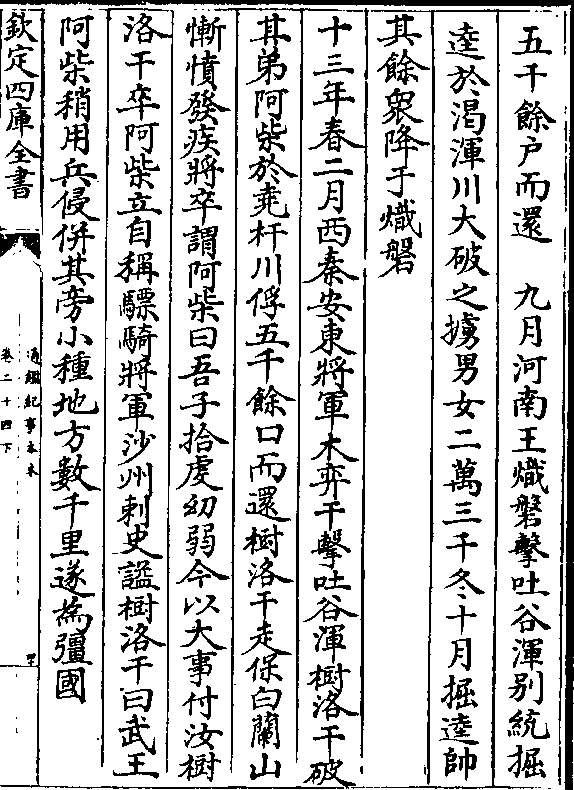 五千餘户而還　九月河南王熾磐擊吐谷渾别統掘
逵於渴渾川大破之擄男女二萬三千冬十月掘逵帥
其餘衆降于熾磐
十三年春二月西秦安東將軍木弈干擊吐谷渾樹洛干破
其弟阿柴於堯杆川俘五千餘口而還樹洛干走保白蘭山
慚憤發疾將卒謂阿柴曰吾子拾虔幼弱今以大事付汝樹
洛干卒阿柴立自稱驃騎將軍沙州刺史諡樹洛干曰武王
阿柴稍用兵侵併其旁小種地方數千里遂為彊國
欽定四庫全書
通鑑紀事本末
卷二十四下